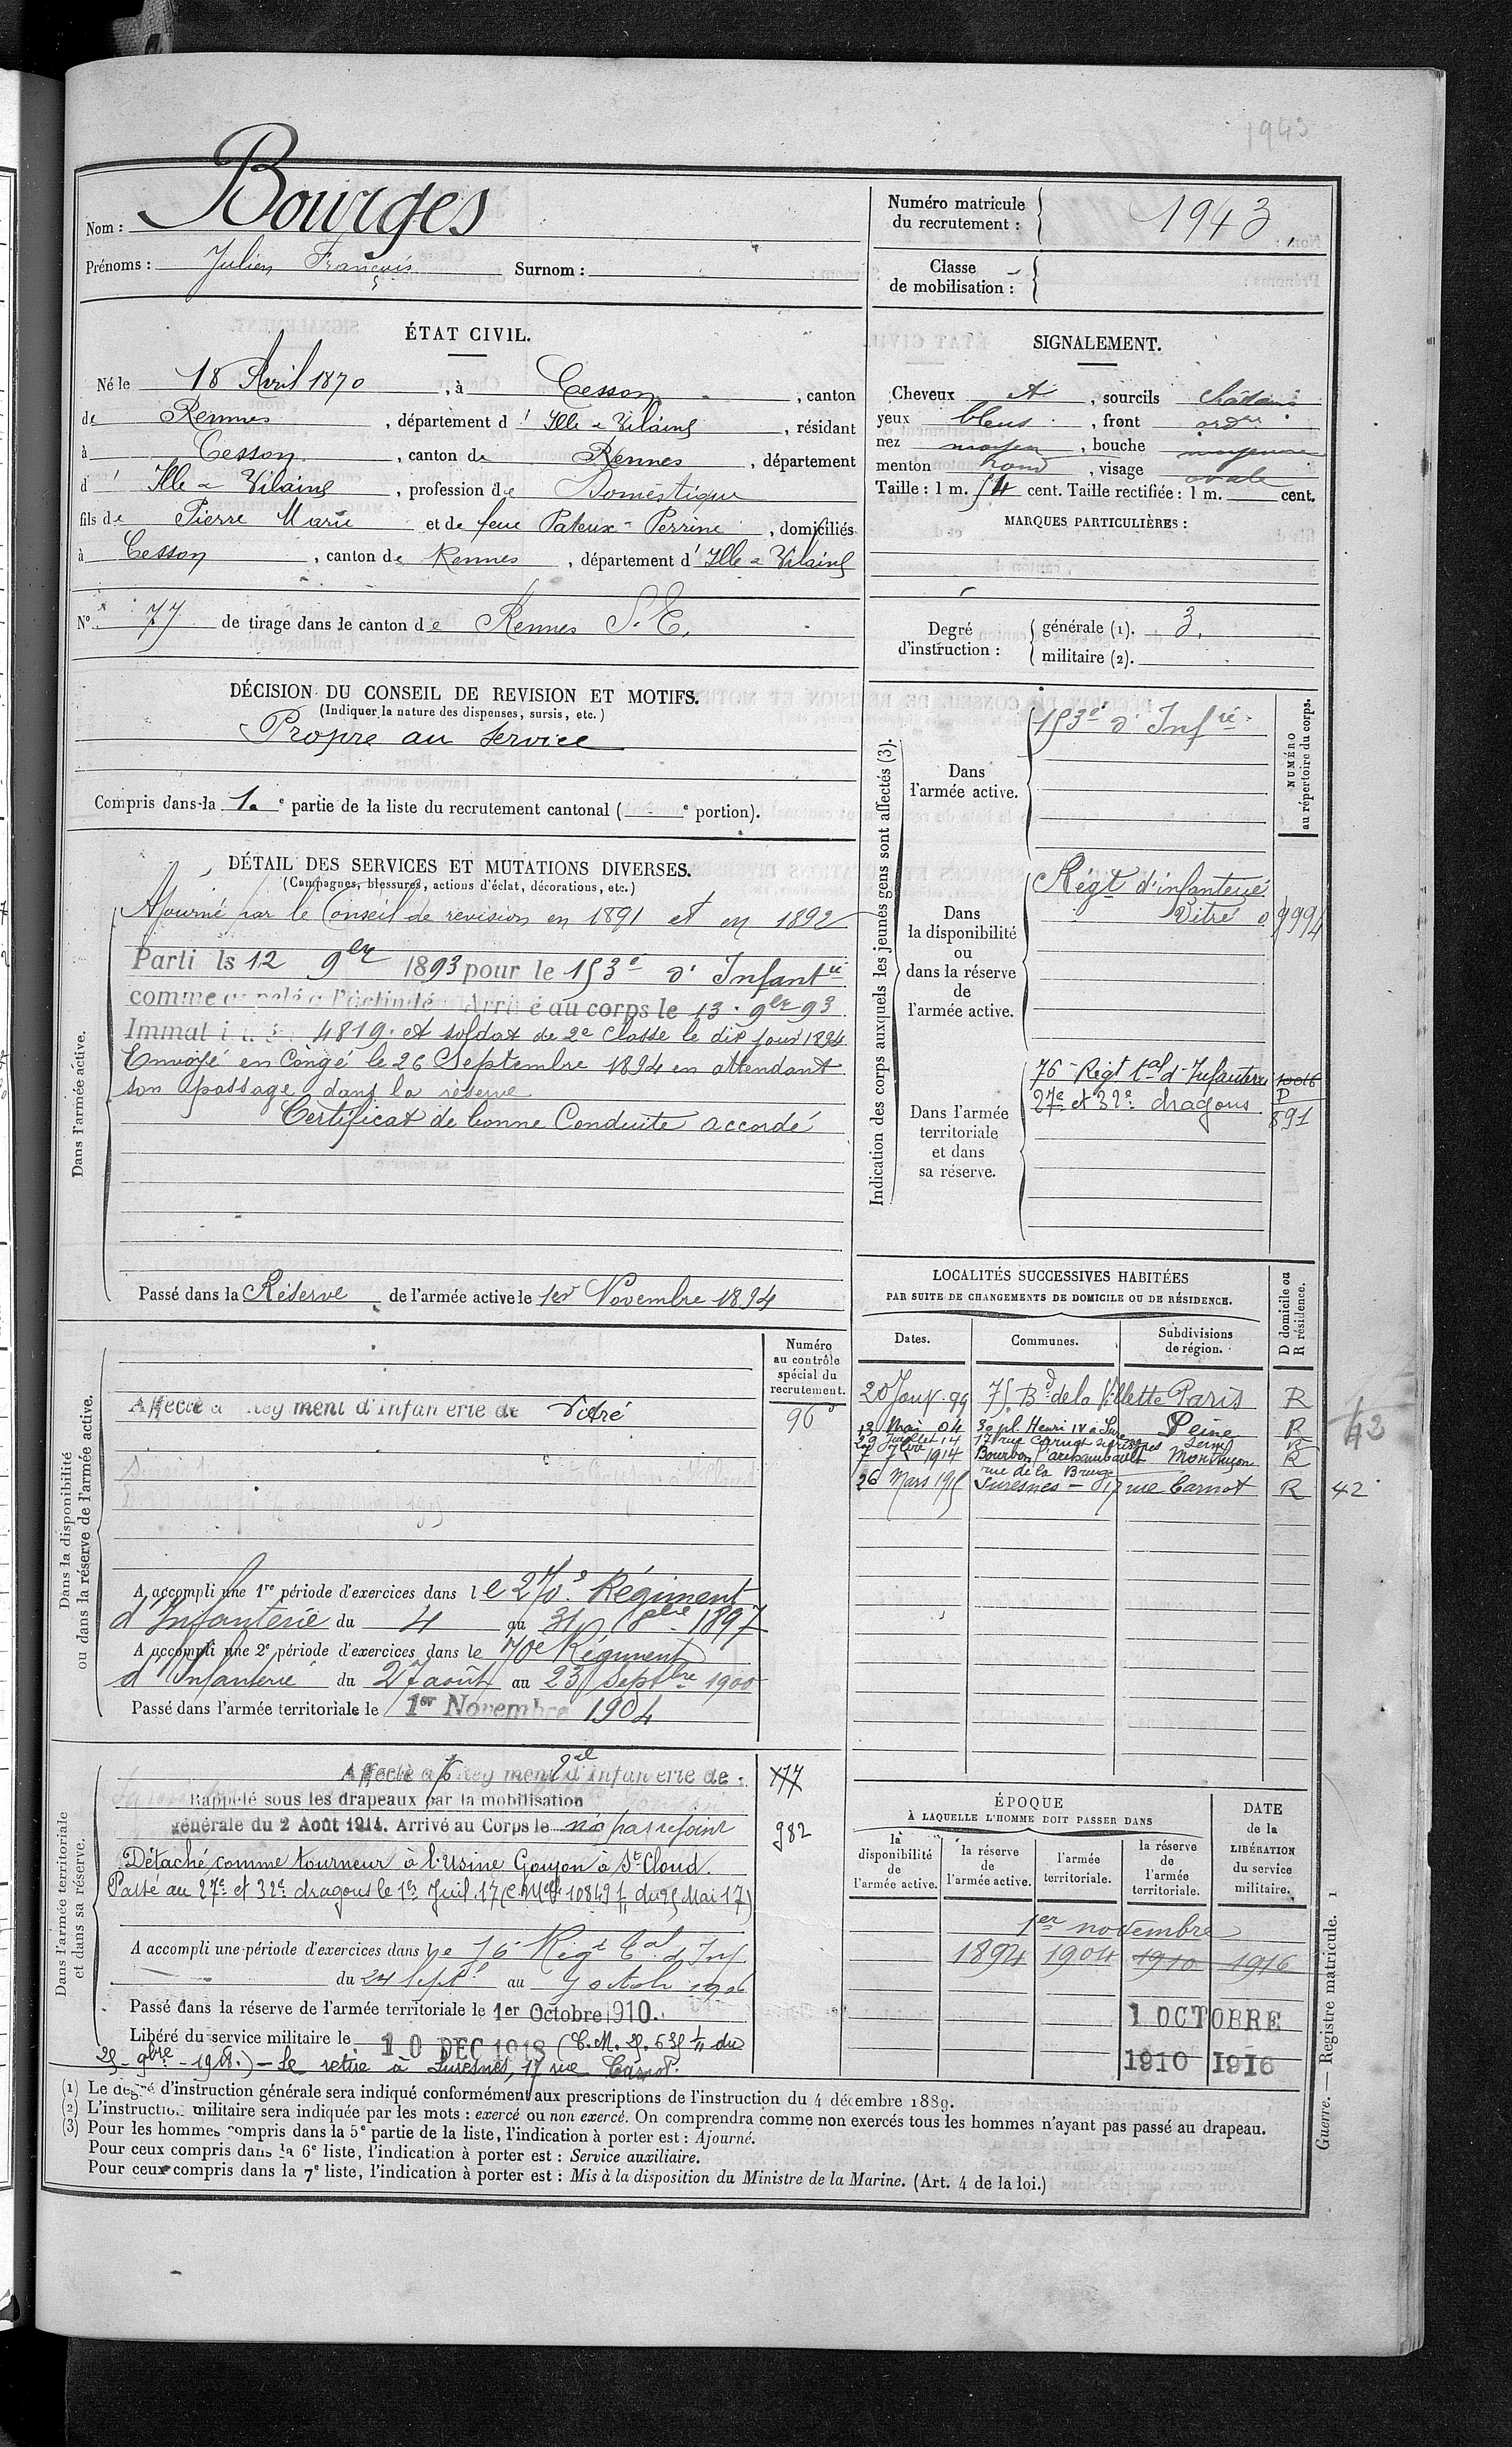 1943
Nom : Bourges
Prénoms : Julien François Surnom :
Numéro matricule du recrutement : 1943
Classe de mobilisation :
ÉTAT CIVIL.
Né le 18 Avril 1870, à Cesson, canton
de Rennes, département d' Ille & Vilaine, résidant
à Cesson, canton de Rennes, département
d' Ille & Vilaine, profession de Domestique
fils de Pierre Marie et de feue Pateux Perrine, domiciliés
à Cesson, canton de Rennes, département d' Ille & Vilaine
N° 77 de tirage dans le canton de Rennes S. E.
SIGNALEMENT.
Cheveux et, sourcils châtains
yeux bleus, front ordre
nez moyen, bouche moyenne
menton rond, visage ovale
Taille : 1 m. 54 cent. Taille rectifiée : 1 m. cent.
MARQUES PARTICULIÈRES :
Degré d'instruction :
générale (1). 3.
militaire (2).
DÉCISION DU CONSEIL DE REVISION ET MOTIFS.
(Indiquer la nature des dispenses, sursis, etc.)
Propre au service
Compris dans la 1.e partie de la liste du recrutement cantonal ( e portion).
DÉTAIL DES SERVICES ET MUTATIONS DIVERSES.
(Campagnes, blessures, actions d'éclat, décorations, etc.)
Dans l'armée active.
Ajourné par le Conseil de revision en 1891 et en 1892
Parti le 12 9bre 1893 pour le 153e d'Infantie
comme appelé à l'activité Arrivé au corps le 13 9bre 93
4819. et soldat de 2e classe le dit jour 1894
Envoyé en Congé le 26 Septembre 1894 en attendant
son passage dans la réserve
Certificat de bonne Conduite accordé
Passé dans la Réserve de l'armée active le 1er Novembre 1894
Indication des corps auxquels les jeunes gens sont affectés (3).
NUMÉRO au répertoire du corps.
Dans l'armée active.
153e d'Infie
Dans la disponibilité ou dans la réserve de l'armée active.
Régt d'infanterie
Vitré 09994
Dans l'armée territoriale et dans sa réserve.
76e Régt tal d'Infanterie 10016
27e et 32e dragons P 891
Dans la disponibilité ou dans la réserve de l'armée active.
Numéro au contrôle spécial du recrutement.
Affecté au Régiment d'infanterie de Vitré 96
A accompli une 1re période d'exercices dans le 270e Régiment
d'Infanterie du 4 au 31 8bre 1897
A accompli une 2e période d'exercices dans le 70e Régiment
d'Infanterie du 27 août au 23 Septbre 1900
Passé dans l'armée territoriale le 1er Novembre 1904
LOCALITÉS SUCCESSIVES HABITÉES
PAR SUITE DE CHANGEMENTS DE DOMICILE OU DE RÉSIDENCE.
D domicile ou R résidence.
Dates. Communes. Subdivisions de région.
20 Janv. 99 75 Bd de la Villette Paris R
13 Mai 04 30 pl. Henri IV à Seine R
29 Juillet 14 17 rue Carnot Suresnes Seine R
7 7bre 1914 Bourbon l'archambault Montluçon R
rue de la
26 Mars 1915 Suresnes - 17 rue Carnot R 42
42
Dans l'armée territoriale et dans sa réserve.
Affecté au 76 Régiment tal d'Infanterie de 177
Rappelé sous les drapeaux par la mobilisation
générale du 2 Août 1914. Arrivé au Corps le n'a pas rejoint 982
Détaché comme tourneur à l'Usine Goujon à St Cloud.
Passé au 27e et 32e dragons le 1er Juil. 17 (C. Mlle 10849 1/11 du 25 Mai 17)
A accompli une période d'exercices dans le 76e Régt tal d'Inf
du 24 Sept. au 7 octob 1906
Passé dans la réserve de l'armée territoriale le 1er Octobre 1910.
Libéré du service militaire le 10 DEC 1918 (C. M. 29. 635 1/11 du
25 9bre 1918.) - Se retire à Suresnes, 17 rue Carnot.
ÉPOQUE
À LAQUELLE L'HOMME DOIT PASSER DANS
DATE de la LIBÉRATION du service militaire.
la disponibilité de l'armée active. la réserve de l'armée active. l'armée territoriale. la réserve de l'armée territoriale.
1er novembre
1894 1904 1910 1916
1 OCTOBRE
1910 1916
(1) Le degré d'instruction générale sera indiqué conformément aux prescriptions de l'instruction du 4 décembre 1889.
(2) L'instruction militaire sera indiquée par les mots : exercé ou non exercé. On comprendra comme non exercés tous les hommes n'ayant pas passé au drapeau.
(3) Pour les hommes compris dans la 5e partie de la liste, l'indication à porter est : Ajourné.
Pour ceux compris dans la 6e liste, l'indication à porter est : Service auxiliaire.
Pour ceux compris dans la 7e liste, l'indication à porter est : Mis à la disposition du Ministre de la Marine. (Art. 4 de la loi.)
Guerre. — Registre matricule. 1